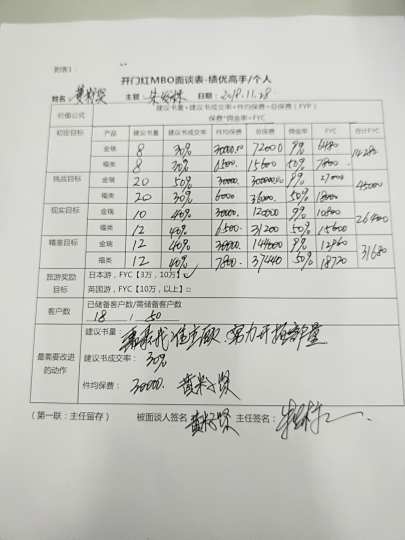 附表1：
开门红MBO面谈表-绩优高手/个人
姓名： 主管 日期：2018.11.28
价值公式 建议书量×建议书成交率×件均保费=总保费（FYP）
保费*佣金率=FYC
产品 建议书量 建议书成交率 件均保费 总保费 佣金率 FYC 合计FYC
初级目标 金瑞 8 30% 30000.00 72000 9% 6480 14280
福类 8 30% 6500. 15600 50% 7800
挑战目标 金瑞 20 50% 30000. 300000.00 9% 27000 45000
福类 20 30% 6000 36000 50% 18000
现实目标 金瑞 10 40% 30000. 120000 9% 10800 26400
福类 12 40% 6500 31200 50% 15600
精准目标 金瑞 12 40% 30000 144000 9% 12960 31680
福类 12 40% 7800 37440 50% 18720
旅游奖励 日本游，FYC【3万，10万】
目标 英国游，FYC【10万，以上】□
客户数 已储备客户数/需储备客户数
18 / 50
建议书量：
最需要改进 建议书成交率：30%
的动作 件均保费：30000.
（第一联：主任留存） 被面谈人签名 主任签名：